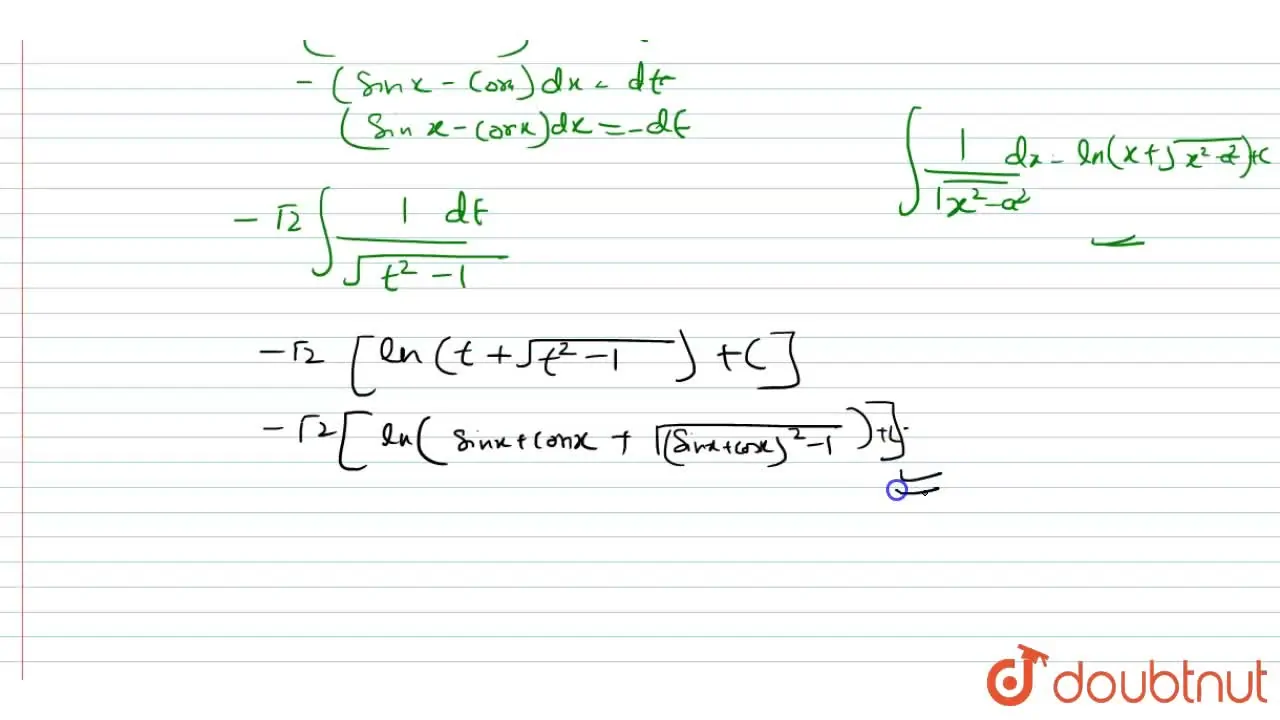 - (Sin x - Cosx) dx = dt
(Sin x - Cosx) dx = -dt
∫ 1/√(x² - a²) dx = ln(x + √(x² - a²)) + C
- √2 ∫ 1 dt / √(t² - 1)
- √2 [ ln (t + √(t² - 1)) + C ]
- √2 [ ln ( Sinx + Cosx + √((Sinx + Cosx)² - 1) ) + C ]
doubtnut